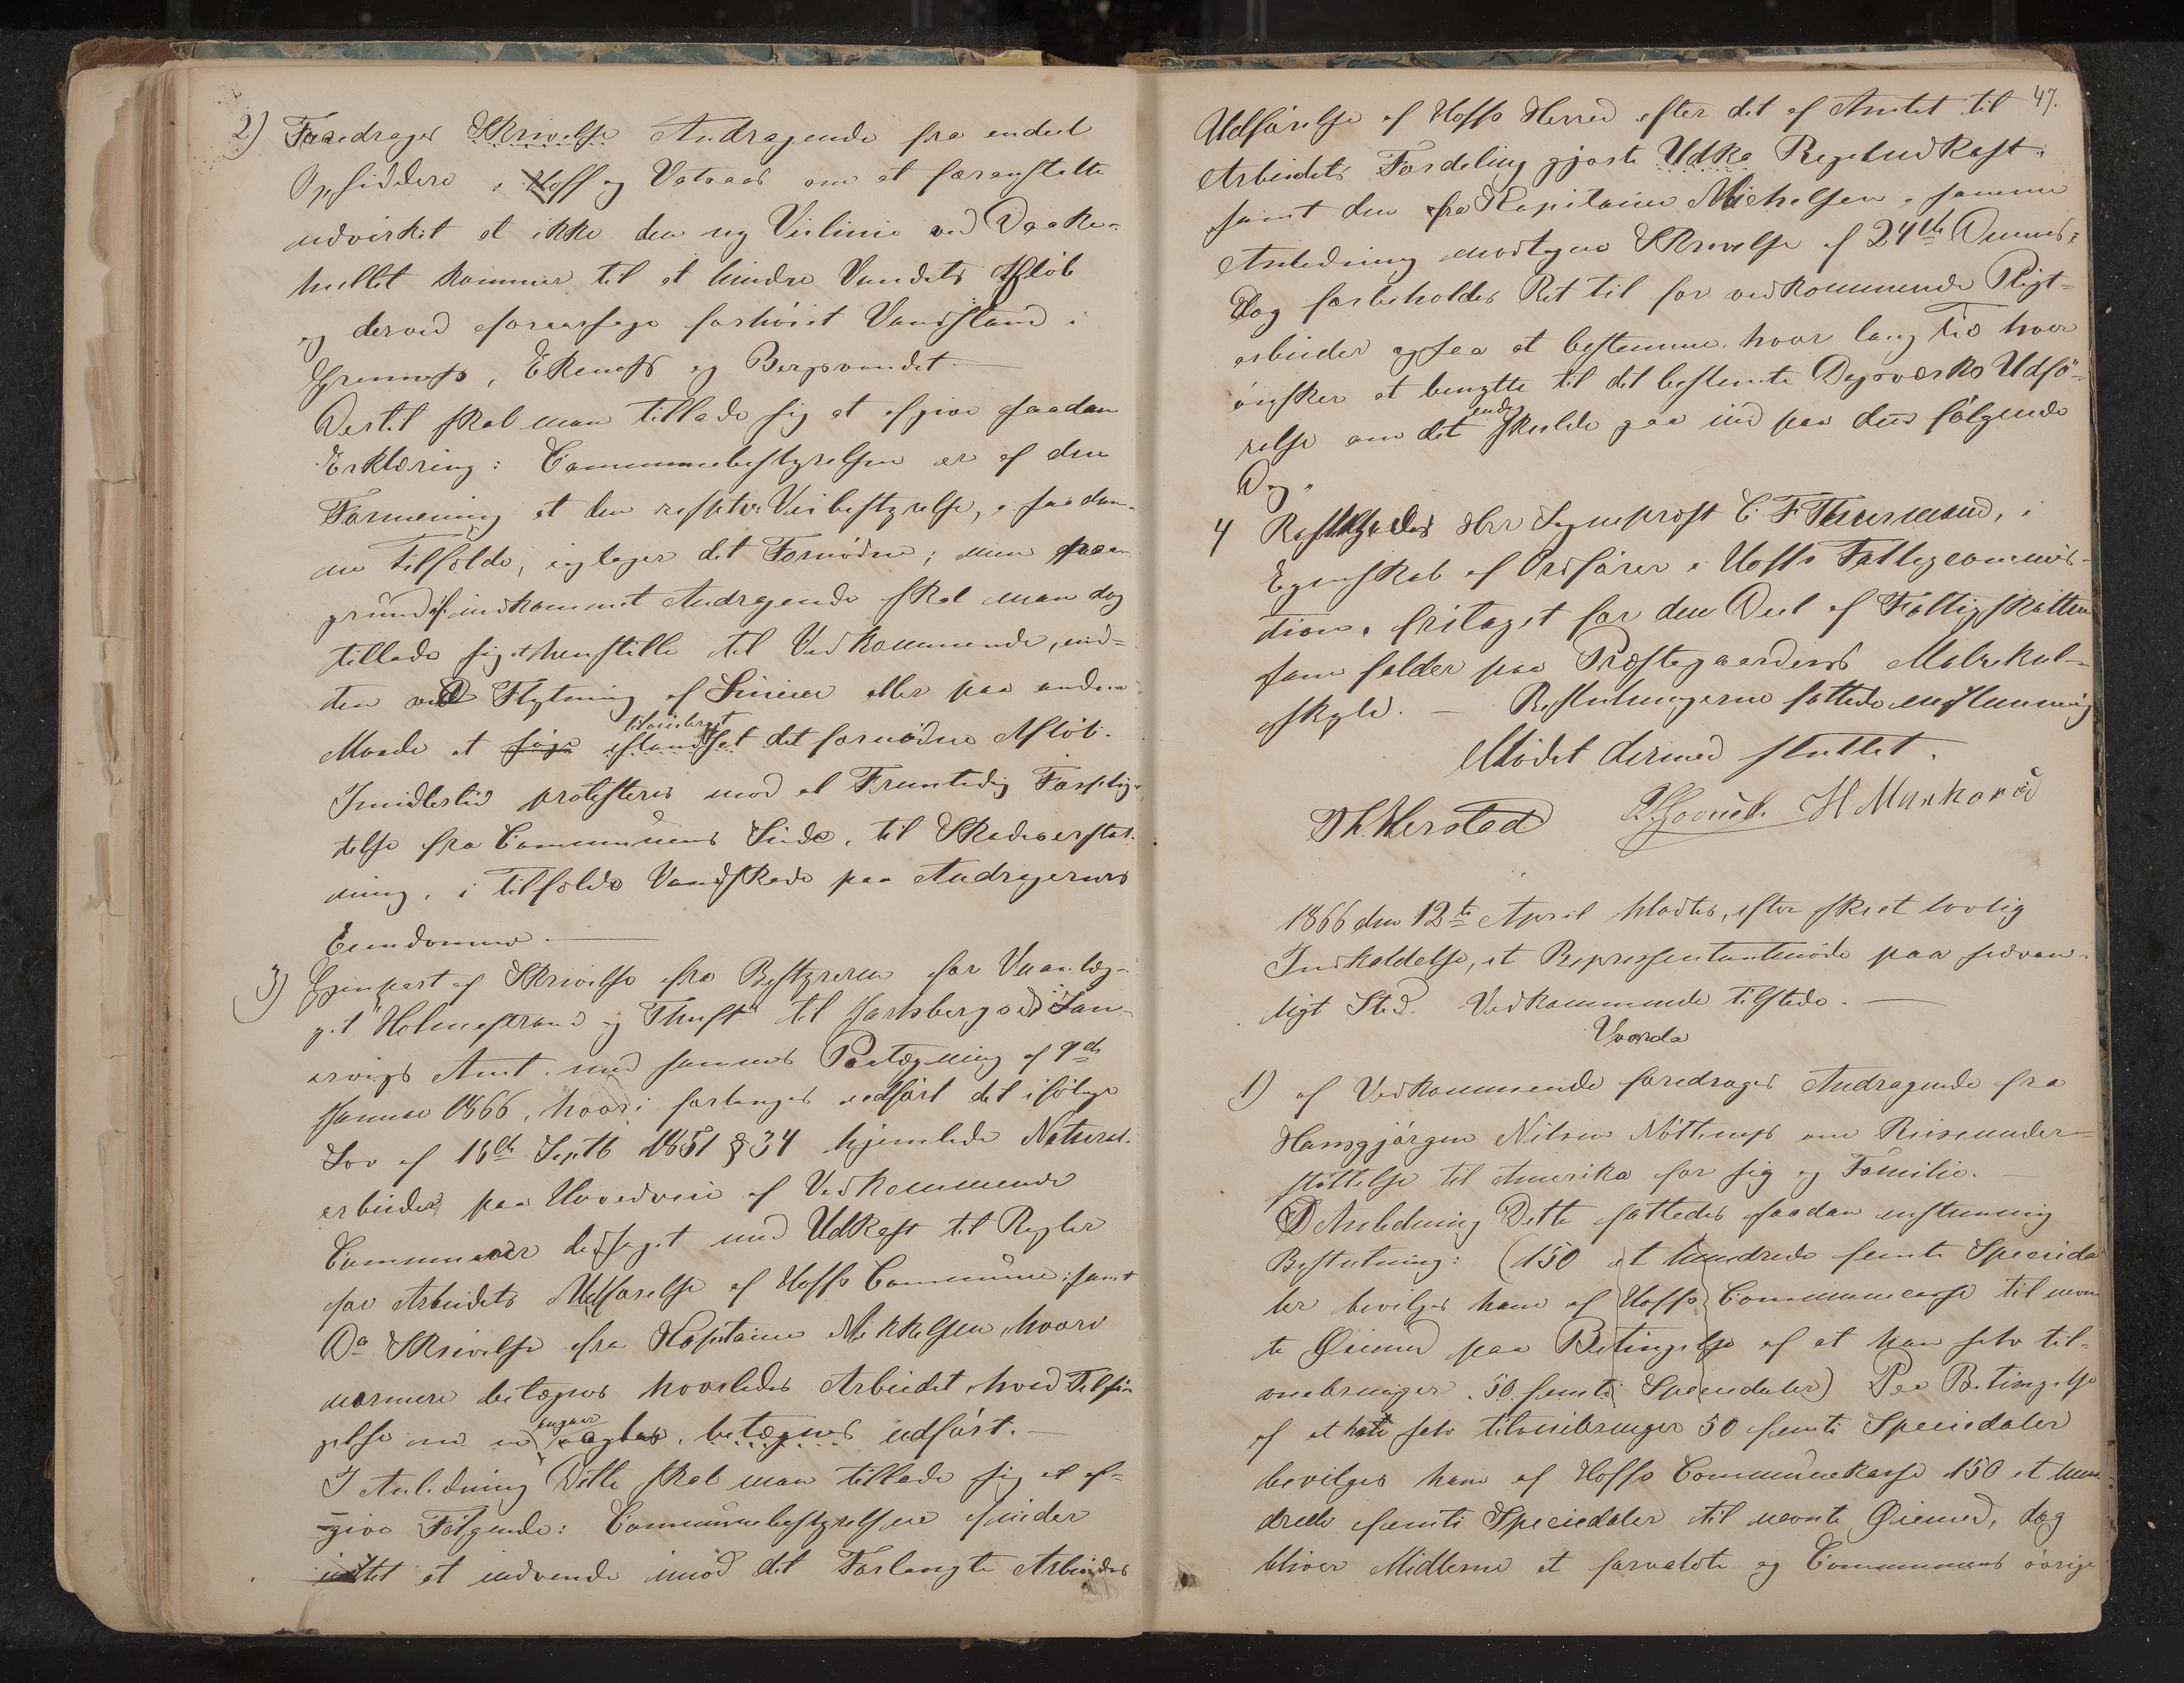 2) Foredrages Skrivelse Andragende fra endeel
Opsiddere i Hoff og Vataas om at foranstalte
udvirket at ikke den ny Veilinie ved Daake-
hullet kommer til at hindre Vandets Afløb
og derved foraarsage forhöiet Vandstand i
Grennes, Ekenes og Bergsvandet. —
Dertil skal man tillade sig at afgive saadan
Erklæring: Communebestyrelsen er af den
Formening at den respktve Veibestyrelse, i saadan-
ne Tilfælde, iagtager det Fornødne; men paa
grund af indkommet Andragende skal man dog
tillade sig at henstille til Vedkommende, en-
ten ved Flytning af Linien eller paa anden
Maade at søge tilveiebragt det fornødne Afløb.
Imidlertid protesteres mod al Fremtidig Forplig-
telse fra Communens Side, til Skadeserstat-
ning, i Tilfælde Vandskade paa Andragernes
Eiendomme. —
3) Gjenpart af Skrivelse fra Bestyreren for Veianlæg-
get "Holmestrand og Thinest" til Jarlsberg og Lau-
rvigs Amt. med sammes Paategning af 9de
Januar 1866, hvori forlanges udført det ifølge
Lov af 16de Septb 1851 § 34 hjemlede Natural-
arbeide paa Hovedveie af Vedkommende
Communer ledsaget med Udkast til Regler
for Arbeidets Udførelse af Hoffs Commune; samt
Do Skrivelse fra Kapitaine Mikkelsen, hvori
nærmere betegnes hvorledes Arbeidet, hved Tilsi-
gelse om en udført. —
I Anledning Dette skal man tillade sig at af-
give Følgende: Communebestyrelsen finder
intet at indvende imod det Forlangte Arbeides
47.
Udførelse af Hoffs Herred efter det af Amtet til
Arbeidets Fordeling gjorte Udka Regeludkast,
samt den fra Kapitaine Michelsen i samme
Anledning modtagne Skrivelse af 24de Dennes;
Dog forbeholdes Ret til for vedkommende Pligt-
arbeider ogsaa at bestemme hvor lang Tid hver
ønsker at benytte til det bestemte Dagsværks Udfø-
relse om det endog skulde gaa ind paa den følgende
Dag.
4 Herr Sogneprest C. F. i
Egenskab af Ordfører i Hoffs Fattigcommis-
sion, fritaget for den Deel af Fattigskatten
som falder paa Præstegaardens Matrikul-
skyld. — Beslutningerne fattede enstemmig
Mödet dermed sluttet.
H
1866 den 12te April holdtes, efter skeet lovlig
Indkaldelse, et Representantmöde paa sedvan-
ligt Sted. Vedkommende tilstede. —
Hvorda
1) af Vedkommende foredrages Andragende fra
Hansgjørgen Nilsen om Reiseunder-
støttelse til Amerika for sig og Familie. —
I Anledning Dette fattedes saadan enstemmig
Beslutning: (150 et hundrede femti Specieda
ler bevilges ham af Hoffs Communecasse til nevn
te Øiemed paa Betingelse af at han selv til-
veiebringer 50 femti Speciedaler) Paa Betingelse
af at han selv tilveiebringer 50 femti Speciedaler
bevilges ham af Hoffs Communekasse 150 et hun-
drede femti Speciedaler til nevnte Øiemed, dog
bliver Midlerne at forvalte og Communens øvrige